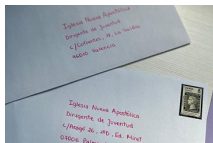 Iglesia Nueva Apostólica
Dirigente de Juventud
46010 Valencia
Iglesia Nueva Apostólica
Dirigente de Juventud
C/Aragó 26, Ed. Miret